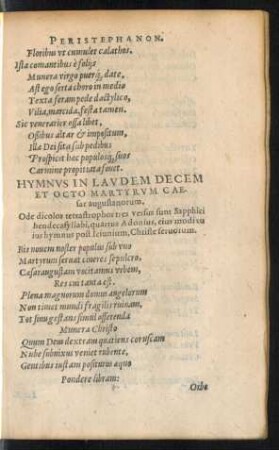 PERISTEPHANON.
Floribus vt cumulet calathos.
Ista comantibus è folijs
Munera virgo puerq́, date,
Ast ego serta choro in medio
Texta feram pede dactylico,
Vilia, marcida, festa tamen.
Sic venerarier ossa libet,
Ossibus altar & impositum,
Illa Dei sita sub pedibus
Prospicit hæc populosq́, suos
Carmine propitiata fouet.
HYMNVS IN LAVDEM DECEM
ET OCTO MARTYRVM CAE-
sar augustanorum.
Ode dicolos tetrastrophos tres versus sunt Sapphici
hendecasyllabi, quartus Adonius, eius modi vt
ius hymnus post Ieiunium, Christe seruorum.
Bis nouem noster populus sub vno
Martyrum seruat cineres sepulcro,
Cæsaraugustam vocitamus vrbem,
Res cui tanta est.
Plena magnorum domus angelorum
Non timet mundi fragilis ruinam,
Tot sinu gestans simul offerenda
Munera Christo
Quum Deus dextram quatiens coruscam
Nube subnixus veniet rubente,
Gentibus iustam positurus æquo
Pondere libram:
Orbe